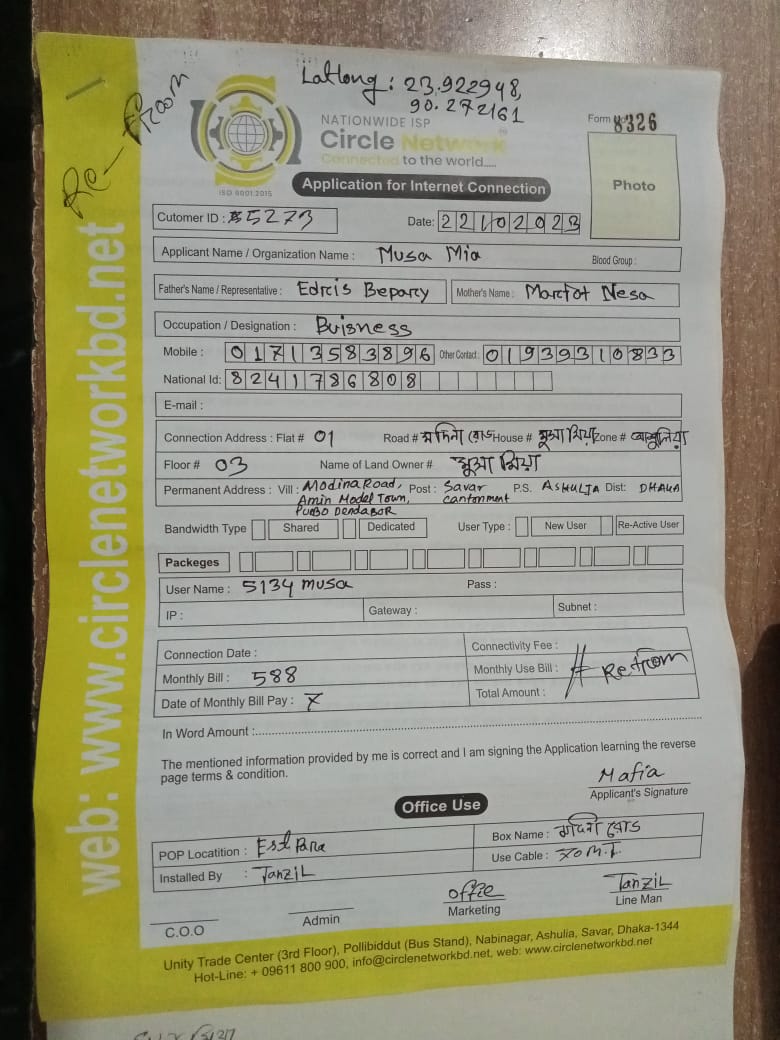 Latlong : 23.922948,
90.272161
Re-From
NATIONWIDE ISP
Circle Network
Connected to the world.....
ISO 9001:2015
Form 8326
Photo
Application for Internet Connection
Cutomer ID : 5273 Date: 22102023
Applicant Name / Organization Name : Musa Mia Blood Group :
Father's Name / Representative : Edrcis Beparcy Mother's Name : Marcfot Nesa
Occupation / Designation : Buisness
Mobile : 01713583896 Other Contact : 01939310833
National Id: 8241786808
E-mail :
Connection Address : Flat # 01 Road # মদিনা রোড House # মুসা মিয়া Zone # আশুলিয়া
Floor # 03 Name of Land Owner # মুসা মিয়া
Permanent Address : Vill : Modina Road, Amin Model Town, Purbo Dendabor Post : Savar cantonment P.S. ASHULIA Dist: DHAKA
Bandwidth Type Shared Dedicated User Type : New User Re-Active User
Packeges
User Name : 5134 musa Pass :
IP : Gateway : Subnet :
Connection Date : Connectivity Fee :
Monthly Bill : 588 Monthly Use Bill : # Refrom
Date of Monthly Bill Pay : 7 Total Amount :
In Word Amount :
The mentioned information provided by me is correct and I am signing the Application learning the reverse
page terms & condition.
Mafia
Applicant's Signature
Office Use
POP Locatition : Box Name : মদিনা রোড
Installed By : Tanzil Use Cable :
C.O.O Admin offce Marketing Tanzil Line Man
Unity Trade Center (3rd Floor), Pollibiddut (Bus Stand), Nabinagar, Ashulia, Savar, Dhaka-1344
Hot-Line: + 09611 800 900, info@circlenetworkbd.net, web: www.circlenetworkbd.net
web: www.circlenetworkbd.net